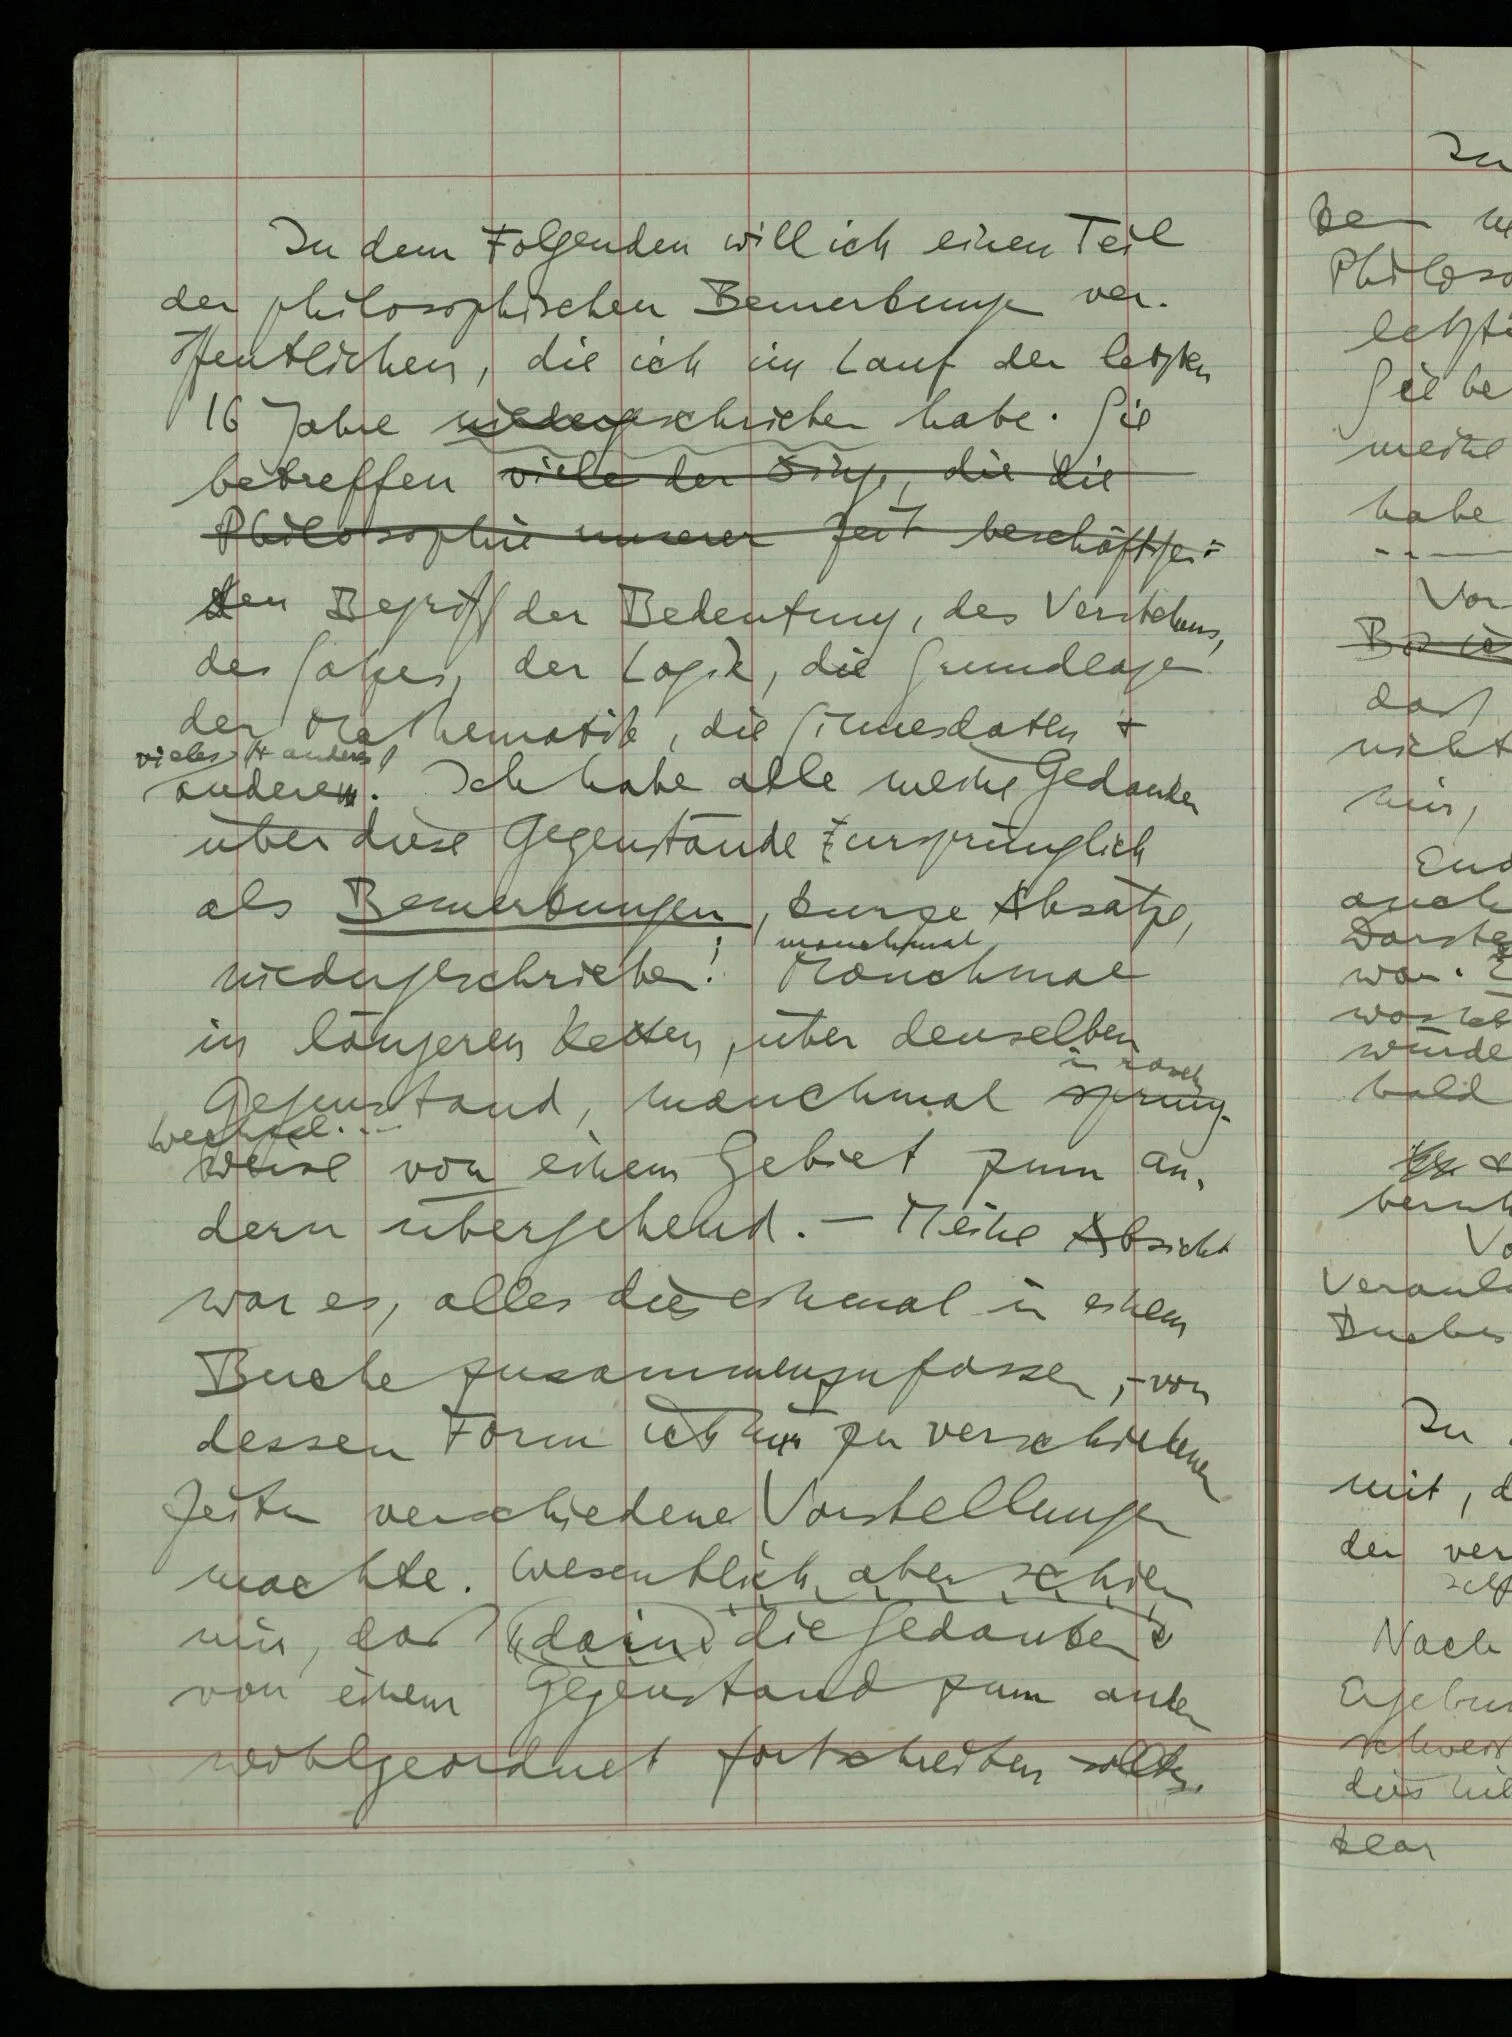 In dem Folgenden will ich einen Teil
der philosophischen Bemerkungen ver-
öffentlichen, die ich im Lauf der letzten
16 Jahre niedergeschrieben habe. Sie
betreffen viele der Dinge, die die
Philosophie unserer Zeit beschäftigen:
den Begriff der Bedeutung, des Verstehens,
des Satzes, der Logik, die Grundlagen
der Mathematik, die Sinnesdaten +
vieles + andere
anderem. Ich habe alle meine Gedanken
über diese Gegenstände ursprünglich
als Bemerkungen, kurze Absätze,
manchmal
niedergeschrieben! Manchmal
in längeren Ketten, über denselben
in rasch
Gegenstand, manchmal sprung-
wechsel
weise von einem Gebiet zum an-
dern übergehend. – Meine Absicht
war es, alles dies einmal in einem
Buche zusammenzufassen, – von
dessen Form ich mir zu verschiedenen
Zeiten verschiedene Vorstellungen
machte. Wesentlich aber schien
mir, daß darin die Gedanken
von einem Gegenstand zum andern
wohlgeordnet fortschreiten sollten.
In
Philoso
letzte
Sie be
meine
habe
Vor
daß
nicht
mir,
End
auch
Darste
war.
würde
bald
Vo
Veranl
Buches
In
mit, d
der ver
Nach
Ergebn
schweiß
dies nie
klar